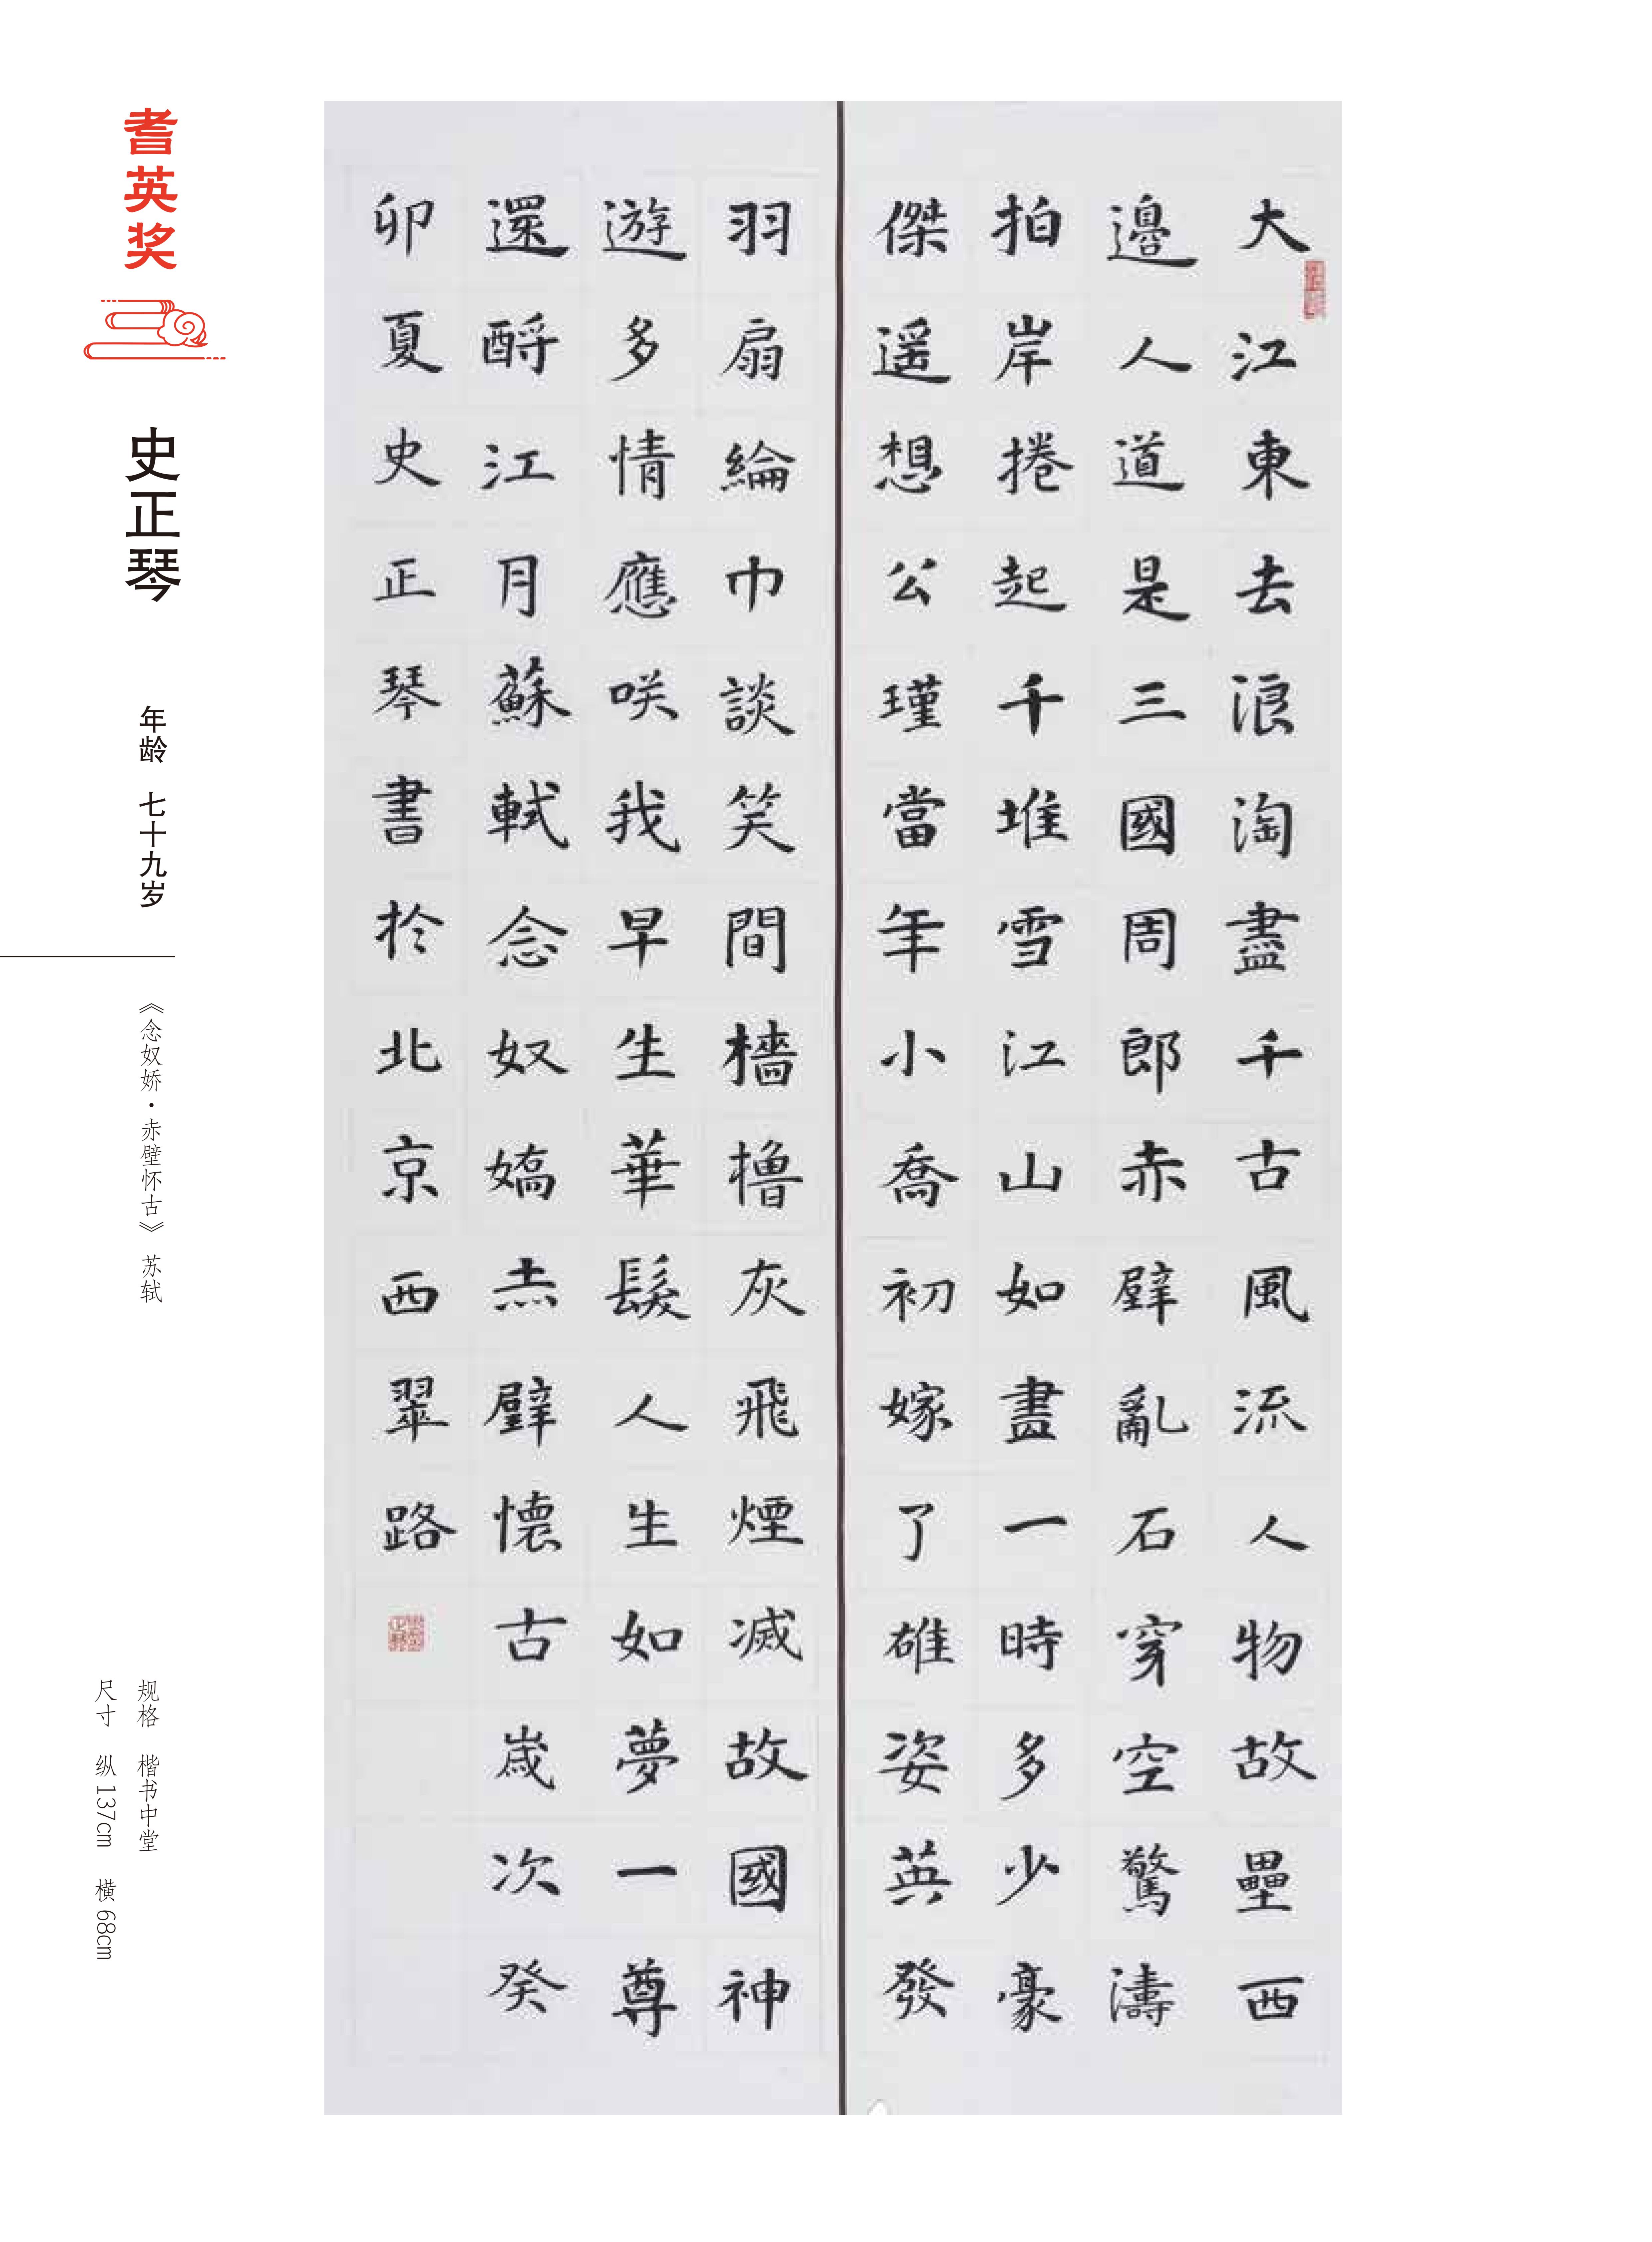 耆英奖
史正琴
年龄 七十九岁
《念奴娇·赤壁怀古》 苏轼
规格 楷书中堂
尺寸 纵137cm 横68cm
大江東去浪淘盡千古風流人物故壘西
邊人道是三國周郎赤壁亂石穿空驚濤
拍岸捲起千堆雪江山如畫一時多少豪
傑遥想公瑾當年小喬初嫁了雄姿英發
羽扇綸巾談笑間檣櫓灰飛煙滅故國神
遊多情應咲我早生華髮人生如夢一尊
還酹江月蘇軾念奴嬌赤壁懷古歲次癸
卯夏史正琴書於北京西翠路